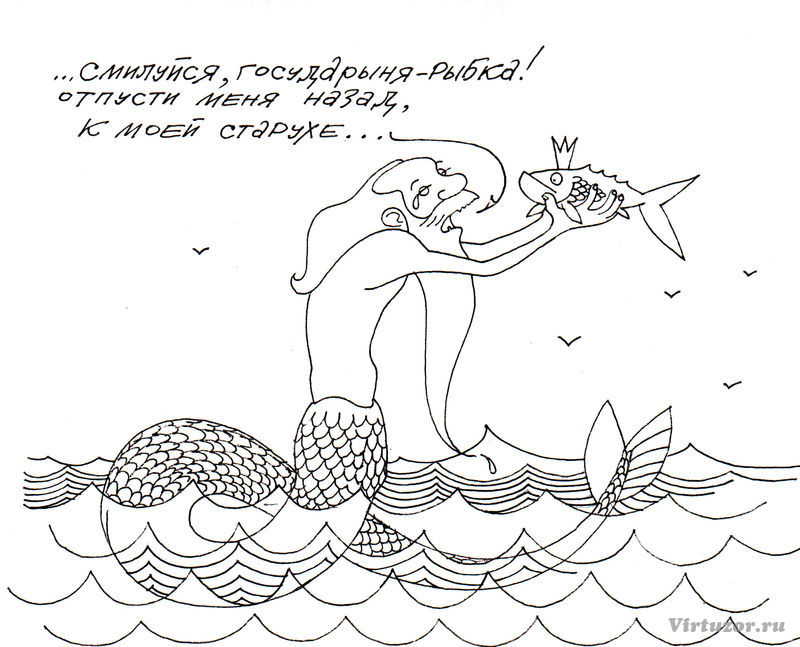 ...смилуйся, государыня-рыбка!
отпусти меня назад,
к моей старухе...
Virtuzor.ru